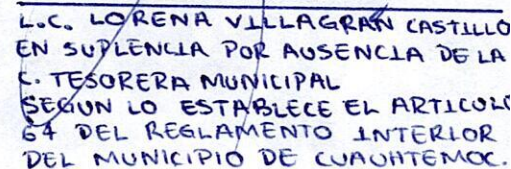 L.C. LORENA VILLAGRAN CASTILLO
EN SUPLENCIA POR AUSENCIA DE LA
C. TESORERA MUNICIPAL
SEGUN LO ESTABLECE EL ARTICULO
64 DEL REGLAMENTO INTERIOR
DEL MUNICIPIO DE CUAUHTEMOC.